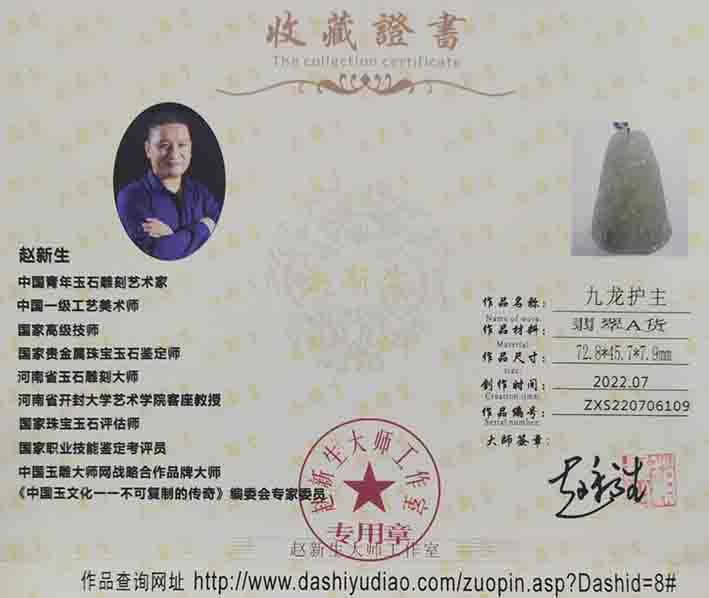 收藏證書
The collection certificate
赵新生
中国青年玉石雕刻艺术家
中国一级工艺美术师
国家高级技师
国家贵金属珠宝玉石鉴定师
河南省玉石雕刻大师
河南省开封大学艺术学院客座教授
国家珠宝玉石评估师
国家职业技能鉴定考评员
中国玉雕大师网战略合作品牌大师
《中国玉文化一一不可复制的传奇》编委会专家委员
作品名称： 九龙护主
Name of work
作品材料： 翡翠A货
Material:
作品尺寸： 72.8*45.7*7.9mm
size:
创作时间： 2022.07
Creation time:
作品编号： ZXS220706109
Serial number:
大师签章：
赵新生
赵新生大师工作室
专用章
赵新生大师工作室
作品查询网址 http://www.dashiyudiao.com/zuopin.asp?Dashid=8#